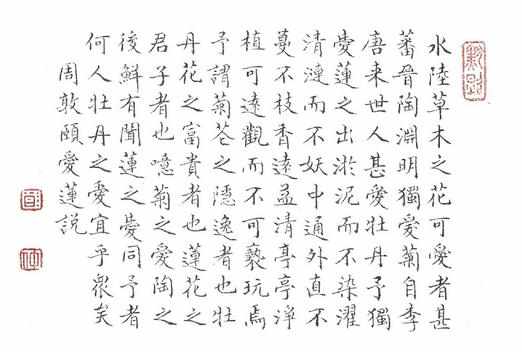 水陸草木之花可愛者甚
蕃晉陶淵明獨愛菊自李
唐来世人甚愛牡丹予獨
愛蓮之出淤泥而不染濯
清漣而不妖中通外直不
蔓不枝香遠益清亭亭淨
植可遠觀而不可褻玩焉
予謂菊花之隱逸者也牡
丹花之富貴者也蓮花之
君子者也噫菊之愛陶之
後鮮有聞蓮之愛同予者
何人牡丹之愛宜乎衆矣
周敦頤愛蓮説